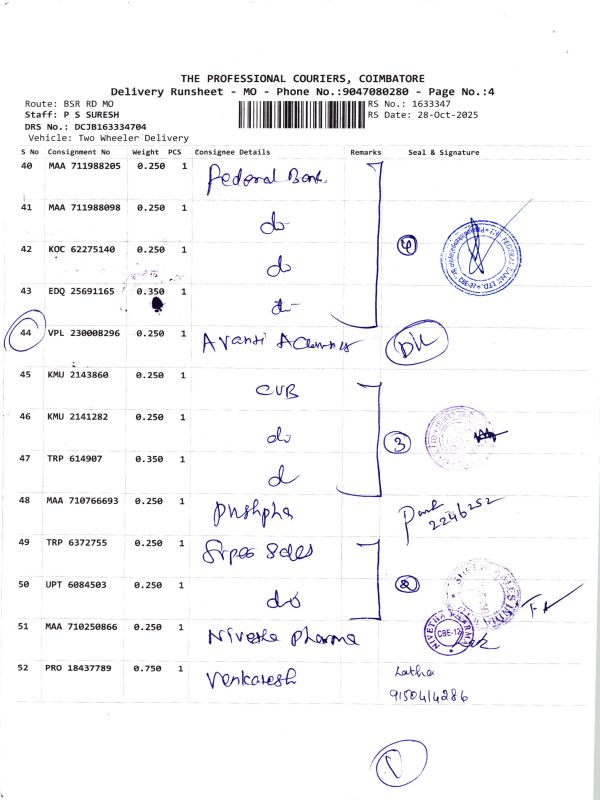 THE PROFESSIONAL COURIERS, COIMBATORE
Delivery Runsheet - MO - Phone No.:9047080280 - Page No.:4
Route: BSR RD MO RS No.: 1633347
Staff: P S SURESH RS Date: 28-Oct-2025
DRS No.: DCJB163334704
Vehicle: Two Wheeler Delivery
S No Consignment No Weight PCS Consignee Details Remarks Seal & Signature
40 MAA 711988205 0.250 1 Federal Bank
41 MAA 711988098 0.250 1 do
4
42 KOC 62275140 0.250 1 do
43 EDQ 25691165 0.350 1 do
44 VPL 230008296 0.250 1 Avanti
45 KMU 2143860 0.250 1 CUB
46 KMU 2141282 0.250 1 do
3
47 TRP 614907 0.350 1 d
48 MAA 710766693 0.250 1 Pushpha
49 TRP 6372755 0.250 1 Sales
50 UPT 6084503 0.250 1 do
2
51 MAA 710250866 0.250 1 Nivetha Pharma
NIVETHA PHARMA CBE-12
52 PRO 18437789 0.750 1 Venkatesh Latha
9150414286